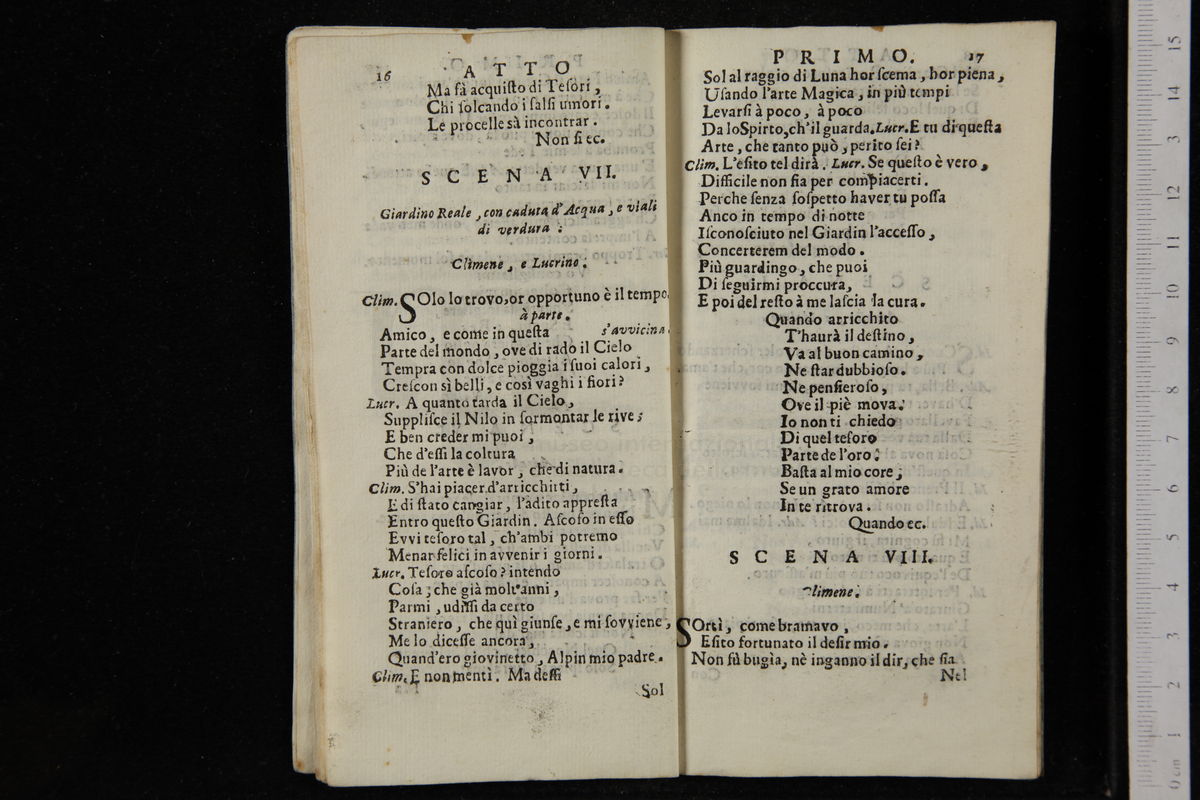 16
ATTO
Ma fà acquiſto di Teſori,
Chi ſolcando i ſalſi umori.
Le procelle sà incontrar.
Non ſi ec.
SCENA VII.
Giardino Reale, con caduta d'Acqua, e viali
di verdura.
Climene, e Lucrino.
Clim. SOlo lo trovo, or opportuno è il tempo.
à parte.
Amico, e come in queſta s'avvicina.
Parte del mondo, ove di rado il Cielo
Tempra con dolce pioggia i ſuoi calori,
Creſcon sì belli, e così vaghi i fiori?
Lucr. A quanto tarda il Cielo,
Suppliſce il Nilo in ſormontar le rive;
E ben creder mi puoi,
Che d'eſſi la coltura
Più de l'arte è lavor, che di natura.
Clim. S'hai piacer d'arricchirti,
E di ſtato cangiar, l'adito appreſta
Entro queſto Giardin. Aſcoſo in eſſo
Evvi teſoro tal, ch'ambi potremo
Menar felici in avvenir i giorni.
Lucr. Teſoro aſcoſo? intendo
Coſa; che già molt'anni,
Parmi, udiſſi da certo
Straniero, che quì giunſe, e mi ſovviene,
Me lo diceſſe ancora,
Quand'ero giovinetto, Alpin mio padre.
Clim. E non mentì. Ma deſſi
Sol
PRIMO. 17
Sol al raggio di Luna hor ſcema, hor piena,
Uſando l'arte Magica, in più tempi
Levarſi à poco, à poco
Da lo Spirto, ch'il guarda. Lucr. E tu di queſta
Arte, che tanto può, perito ſei?
Clim. L'eſito tel dirà. Lucr. Se queſto è vero,
Difficile non fia per compiacerti.
Perche ſenza ſoſpetto haver tu poſſa
Anco in tempo di notte
Iſconoſciuto nel Giardin l'acceſſo,
Concerterem del modo.
Più guardingo, che puoi
Di ſeguirmi proccura,
E poi del reſto à me laſcia la cura.
Quando arricchito
T'haurà il deſtino,
Va al buon camino,
Ne ſtar dubbioſo.
Ne penſieroſo,
Ove il piè mova.
Io non ti chiedo
Di quel teſoro
Parte de l'oro.
Baſta al mio core,
Se un grato amore
In te ritrova.
Quando ec.
SCENA VIII.
Climene.
SOrtì, come bramavo,
Eſito fortunato il deſir mio.
Non fù bugìa, nè inganno il dir, che ſia
Nel